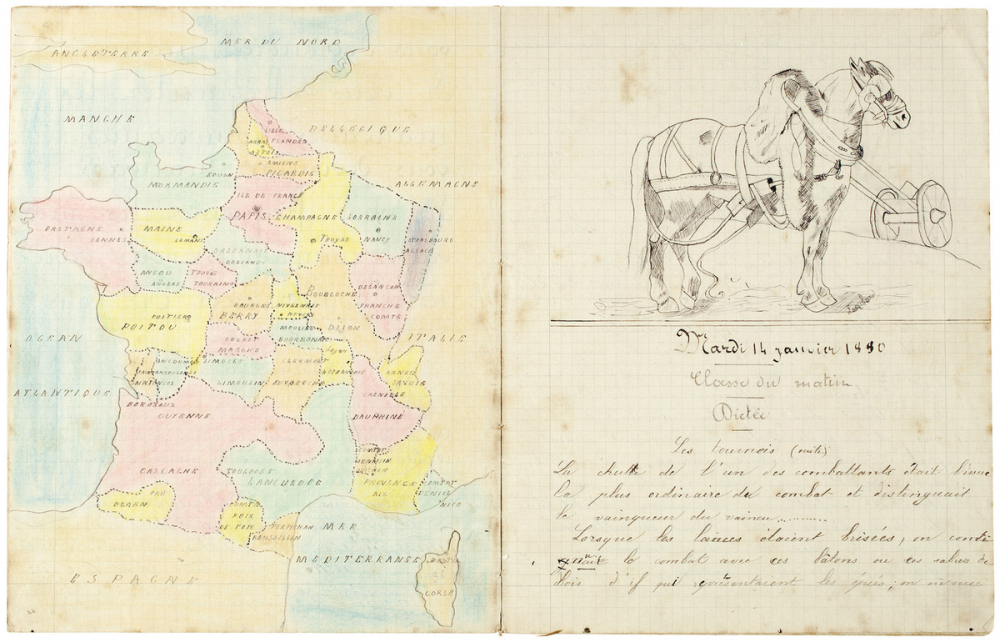 MER DU NORD
ANGLETERRE
MANCHE
BELGIQUE
LILLE
FLANDRE
ARTOIS
AMIENS
PICARDIE
ROUEN
ALLEMAGNE
NORMANDIE
ILE DE FRANCE
PARIS
CHAMPAGNE
LORRAINE
BRETAGNE
RENNES
MAINE
LE MANS
TROYES
NANCY
STRASBOURG
ALSACE
ORLEANAIS
ORLEANS
ANJOU
ANGERS
TOURS
TOURAINE
BOURGOGNE
BESANCON
FRANCHE
COMTE
BOURGES
BERRY
NIVERNAIS
NEVERS
POITIERS
POITOU
MOULINS
BOURBONNAIS
DIJON
OCEAN
ITALIE
MARCHE
LIMOGES
LIMOUSIN
CLERMONT
AUVERGNE
LYON
SAVOIE
ATLANTIQUE
BORDEAUX
GUYENNE
GRENELLE
DAUPHINE
GASCOGNE
TOULOUSE
LANGUEDOC
COMTAT
PROVENCE
AIX
COMTAT
NICE
PAU
BEARN
COMTE
FOIX
DE FOIX
PERPIGNAN
ROUSSILLON
MER
MEDITERRANEE
CORSE
ESPAGNE
Mardi 14 janvier 1880
Classe du matin
Dictée
Les tournois (suite)
La chute de l'un des combattants était l'issue
la plus ordinaire du combat et distinguait
le vainqueur du vaincu.........
Lorsque les lances étaient brisées, on conti-
nuait le combat avec des bâtons ou des sabres de
bois d'if qui